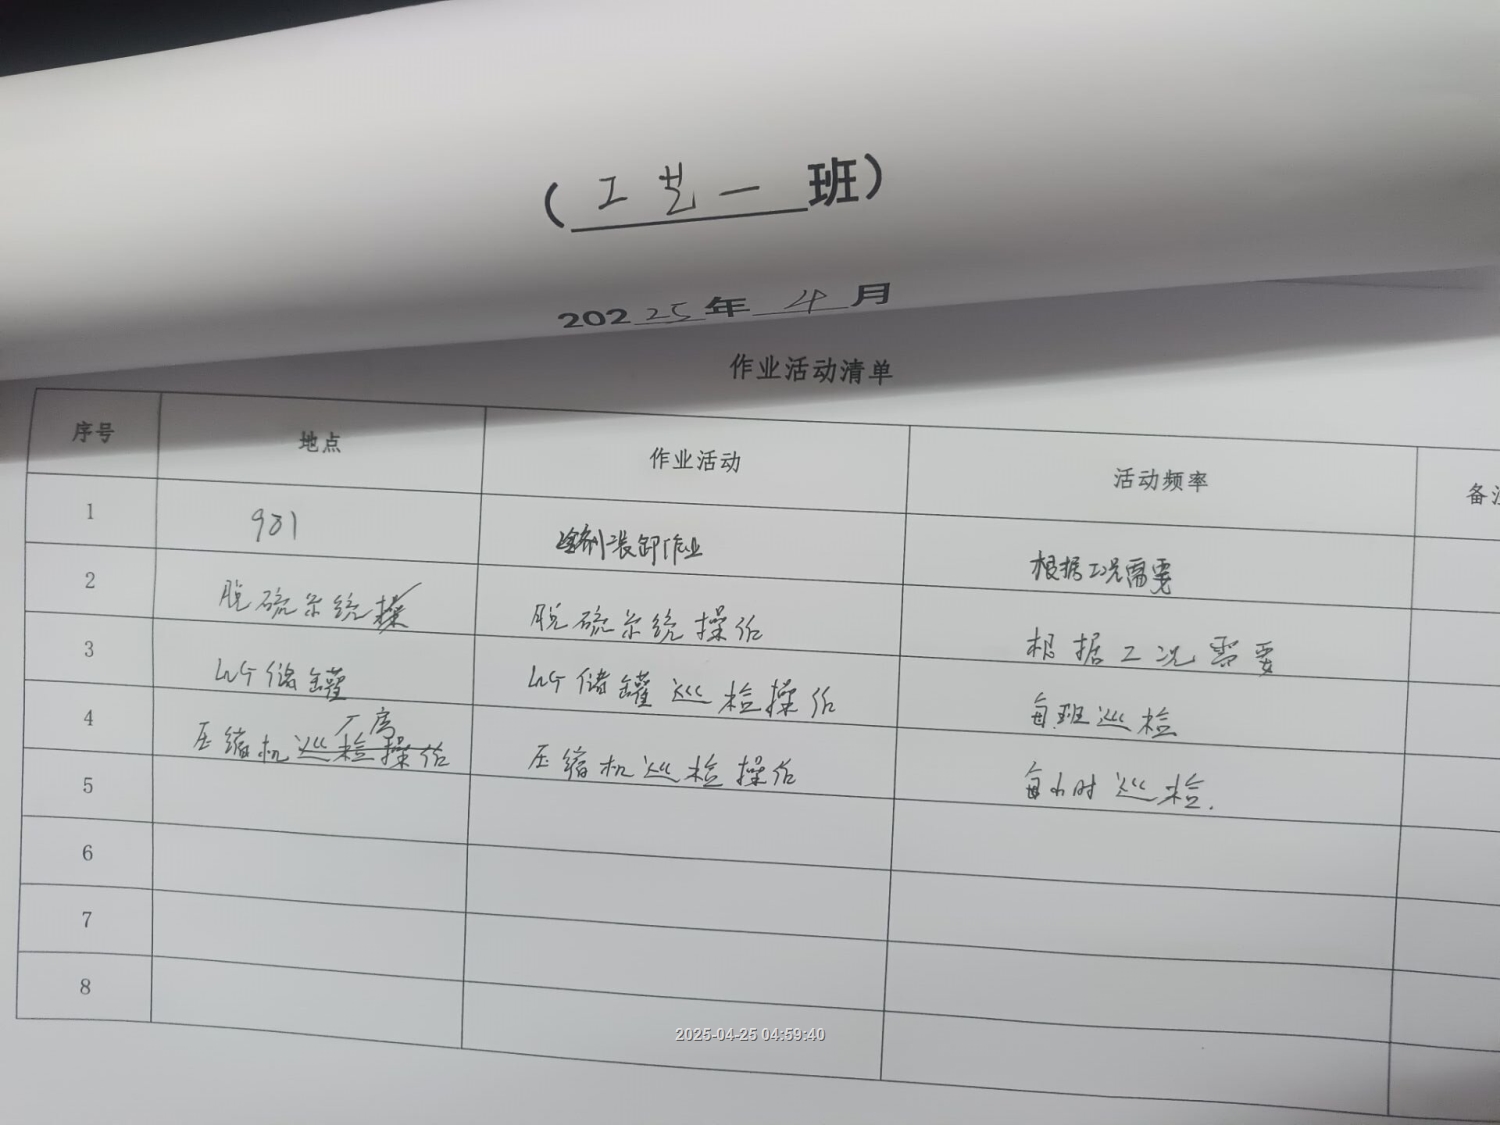 （工艺一班）
20225年4月
作业活动清单
序号 地点 作业活动 活动频率 备注
1 901 装卸作业 根据工况需要
2 脱硫系统 脱硫系统操作 根据工况需要
3 储罐 储罐巡检操作 每班巡检
厂房
4 压缩机巡检操作 压缩机巡检操作 每小时巡检.
5
6
7
8
2025-04-25 04:59:40